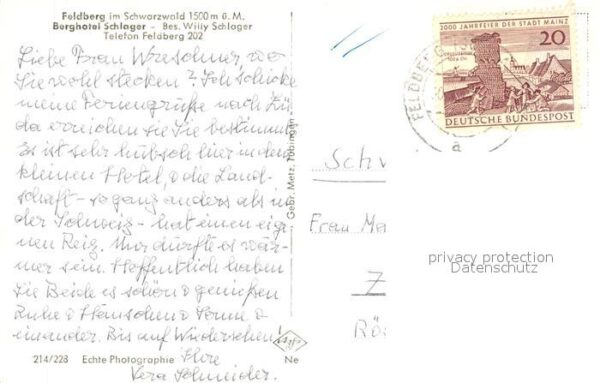 Feldberg im Schwarzwald 1500 m ü. M.
Berghotel Schlager - Bes. Willy Schlager
Telefon Feldberg 202
Liebe Frau Wreschner, wo
Sie wohl stecken? Ich schicke
meine Feriengrüße nach Zü-
da erreichen sie Sie bestimmt
Es ist sehr hübsch hier in dem
kleinen Hotel, & die Land-
schaft - so ganz anders als in
der Schweiz - hat einen eige-
nen Reiz. Nur dürfte es wär-
mer sein. Hoffentlich haben
Sie Beide es schön & genießen
Ruhe & Häuschen & Sonne &
einander. Bis auf Wiedersehen!
Ihre
Vera Schneider.
214/228 Echte Photographie
Ne
Gebr. Metz, Tübingen
agfa
2000 JAHRFEIER DER STADT MAINZ
20
DEUTSCHE BUNDESPOST
FELDBERG
a
Schw
Frau Ma
Z
Rös
privacy protection
Datenschutz